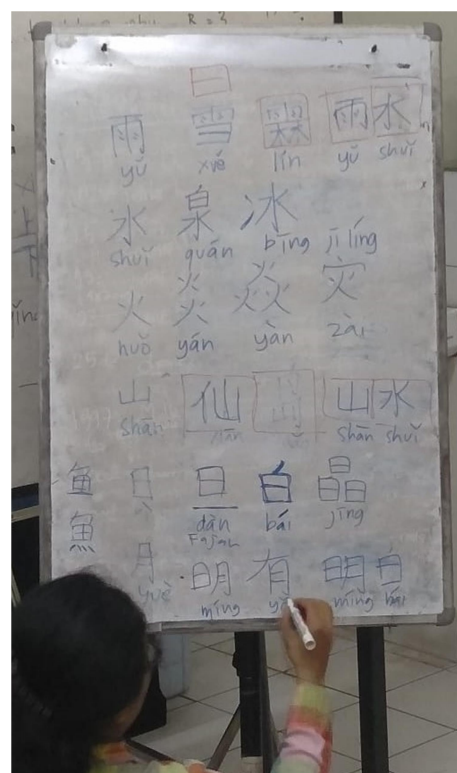 彐
雨 雪 霖 雨水
yǔ xuě lín yǔ shuǐ
水 泉 冰
shuǐ quán bīng jī líng
火 炎 焱 灾
huǒ yán yàn zāi
山 仙 山水
shān xiān shān shuǐ
鱼 日 旦 白 晶
dàn bái jīng
Fajar
魚 月 明 有 明白
yuè míng yǒu míng bái